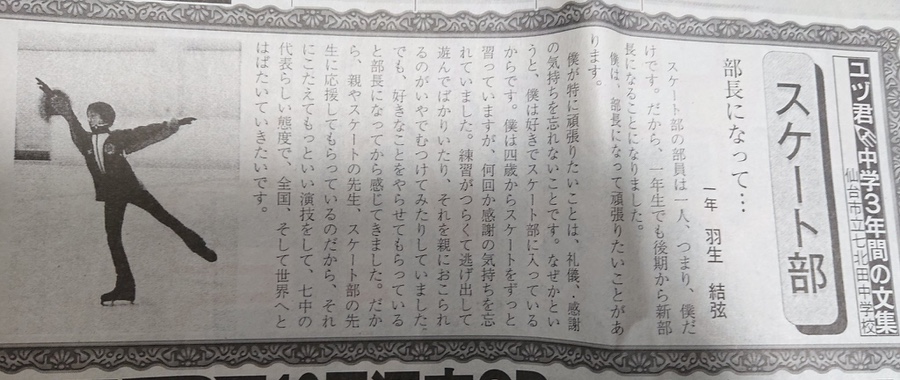 ユヅ君《中学3年間の文集
仙台市立七北田中学校
スケート部
部長になって…
一年　羽生　結弦
スケート部の部員は一人、つまり、僕だ
けです。だから、一年生でも後期から新部
長になることになりました。
僕は、部長になって頑張りたいことがあ
ります。
僕が特に頑張りたいことは、礼儀、感謝
の気持ちを忘れないことです。なぜかとい
うと、僕は好きでスケート部に入っている
からです。僕は四歳からスケートをずっと
習っていますが、何回か感謝の気持ちを忘
れていました。練習がつらくて逃げ出して
遊んでばかりいたり、それを親におこられ
るのがいやでむつけてみたりしていました。
でも、好きなことをやらせてもらっている
と部長になってから感じてきました。だか
ら、親やスケートの先生、スケート部の先
生に応援してもらっているのだから、それ
にこたえてもっといい演技をして、七中の
代表らしい態度で、全国、そして世界へと
はばたいていきたいです。